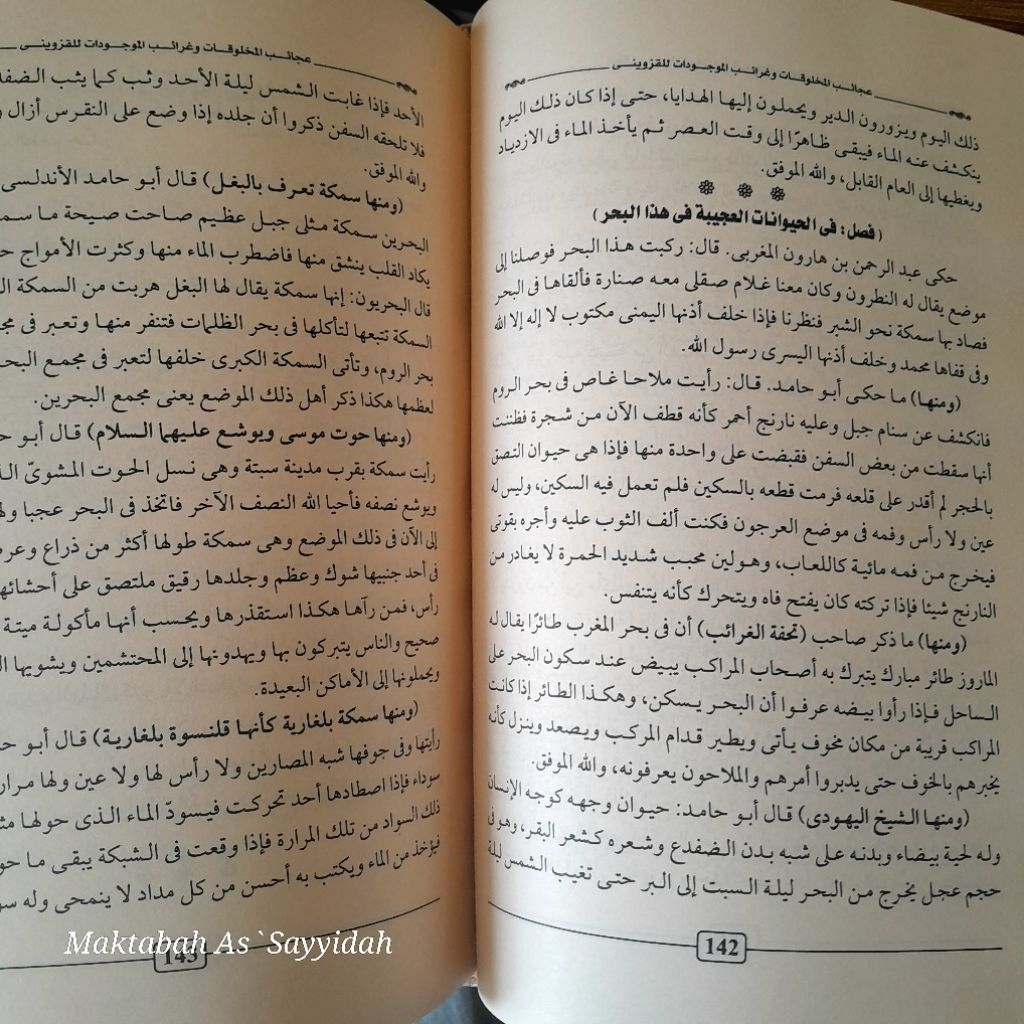 عجائب المخلوقات وغرائب الموجودات للقزوينى
ذلك اليوم ويزورون الدير ويحملون إليها الهدايا، حتى إذا كان ذلك اليوم
ينكشف عنه الماء فيبقى ظاهرًا إلى وقت العصر ثم يأخذ الماء فى الازدياد
ويغطيها إلى العام القابل، والله الموفق.
(فصل: فى الحيوانات العجيبة فى هذا البحر)
حكى عبد الرحمن بن هارون المغربى. قال: ركبت هذا البحر فوصلنا إلى
موضع يقال له النطرون وكان معنا غلام صقلى معه صنارة فألقاها فى البحر
فصاد بها سمكة نحو الشبر فنظرنا فإذا خلف أذنها اليمنى مكتوب لا إله إلا الله
وفى قفاها محمد وخلف أذنها اليسرى رسول الله.
(ومنها) ما حكى أبو حامد. قال: رأيت ملاحا غاص فى بحر الروم
فانكشف عن سنام جبل وعليه نارنج أحمر كأنه قطف الآن من شجرة فظننت
أنها سقطت من بعض السفن فقبضت على واحدة منها فإذا هى حيوان التصق
بالحجر لم أقدر على قلعه فرمت قطعه بالسكين فلم تعمل فيه السكين، وليس له
عين ولا رأس وفمه فى موضع العرجون فكنت ألف الثوب عليه وأجره بقوتى
فيخرج من فمه مائية كاللعاب، وهو لين محبب شديد الحمرة لا يغادر من
النارنج شيئا فإذا تركته كان يفتح فاه ويتحرك كأنه يتنفس.
(ومنها) ما ذكر صاحب (تحفة الغرائب) أن فى بحر المغرب طائرًا يقال له
الماروز طائر مبارك يتبرك به أصحاب المراكب يبيض عند سكون البحر على
الساحل فإذا رأوا بيضه عرفوا أن البحر يسكن، وهكذا الطائر إذا كانت
المراكب قريبة من مكان مخوف يأتى ويطير قدام المركب ويصعد وينزل كأنه
يخبرهم بالخوف حتى يدبروا أمرهم والملاحون يعرفونه، والله الموفق.
(ومنها الشيخ اليهودى) قال أبو حامد: حيوان وجهه كوجه الإنسان
وله لحية بيضاء وبدنه على شبه بدن الضفدع وشعره كشعر البقر، وهو فى
حجم عجل يخرج من البحر ليلة السبت إلى البر حتى تغيب الشمس ليلة
142
عجائب المخلوقات وغرائب الموجودات للقزوينى
الأحد فإذا غابت الشمس ليلة الأحد وثب كما يثب الضفد
فلا تلحقه السفن ذكروا أن جلده إذا وضع على النقرس أزال
والله الموفق.
(ومنها سمكة تعرف بالبغل) قال أبو حامد الأندلسى
البحرين سمكة مثلى جبل عظيم صاحت صيحة ما سم
يكاد القلب ينشق منها فاضطرب الماء منها وكثرت الأمواج ح
قال البحريون: إنها سمكة يقال لها البغل هربت من السمكة ال
السمكة تتبعها لتأكلها فى بحر الظلمات فتنفر منها وتعبر فى مج
بحر الروم، وتأتى السمكة الكبرى خلفها لتعبر فى مجمع البح
لعظمها هكذا ذكر أهل ذلك الموضع يعنى مجمع البحرين.
(ومنها حوت موسى ويوشع عليهما السلام) قال أبو ح
رأيت سمكة بقرب مدينة سبتة وهى نسل الحوت المشوىّ الذ
ويوشع نصفه فأحيا الله النصف الآخر فاتخذ فى البحر عجبا وله
إلى الآن فى ذلك الموضع وهى سمكة طولها أكثر من ذراع وعر
فى أحد جنبيها شوك وعظم وجلدها رقيق ملتصق على أحشائه
رأس، فمن رآها هكذا استقذرها ويحسب أنها مأكولة ميتة
صحيح والناس يتبركون بها ويهدونها إلى المحتشمين ويشويها ال
ويحملونها إلى الأماكن البعيدة.
(ومنها سمكة بلغارية كأنها قلنسوة بلغارية) قال أبو ح
رأيتها وفى جوفها شبه المصارين ولا رأس لها ولا عين ولها مرار
سوداء فإذا اصطادها أحد تحركت فيسودّ الماء الذى حولها مث
ذلك السواد من تلك المرارة فإذا وقعت فى الشبكة يبقى ما حو
فيؤخذ من الماء ويكتب به أحسن من كل مداد لا ينمحى وله سو
143
Maktabah As`Sayyidah